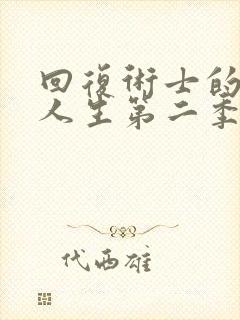 回復術士的
人生第二季
代西雄